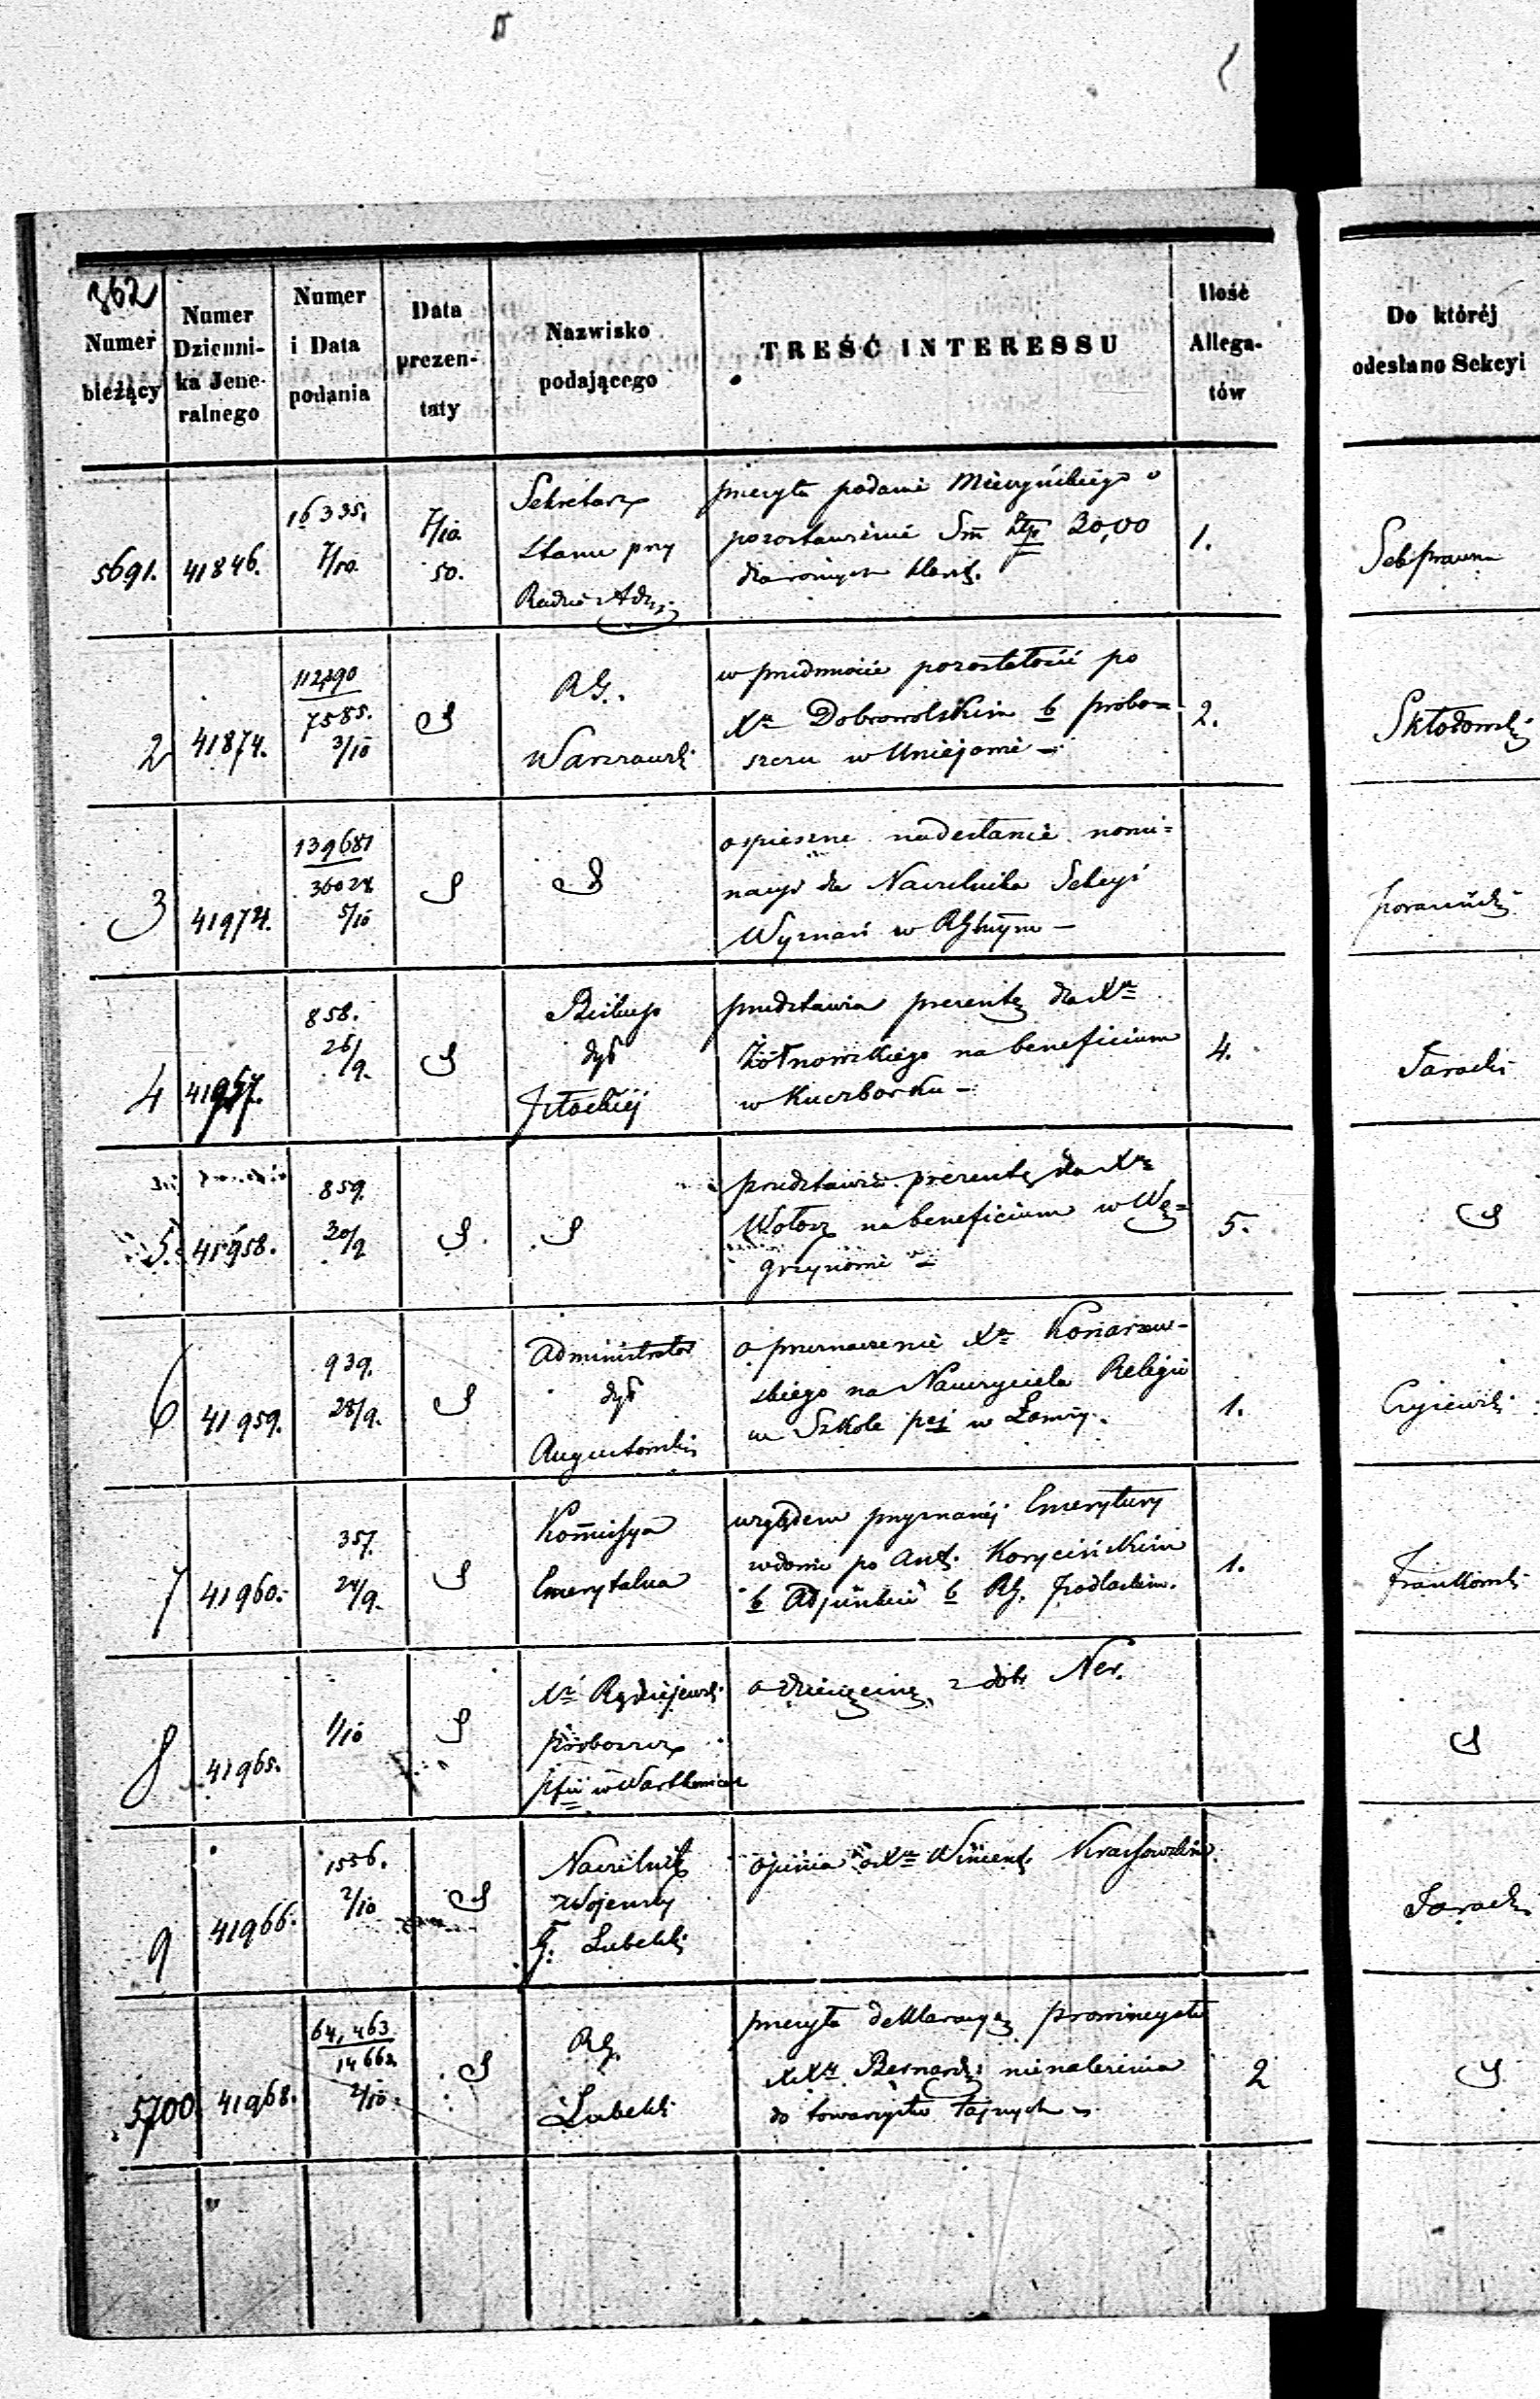 362
Numer bieżący
Numer Dziennika Jeneralnego
Numer i Data podania
Data prezentaty
Nazwisko podającego
TREŚĆ INTERESSU
Ilość Allegatów
Do któréj odesłano Sekcyi
5691.
41846.
16335.
7/10.
7/10.
50.
Sekretarz
Stanu przy
Radzie Adm.
przesyła podanie
pozostawienie Sm Złp 30,00
1.
2
41874.
112290
7585.
3/10
RG.
Warszawski
w przedmiocie pozostałości po
Xu Dobrowolskim b probo=
szczu w Uniejowie –
2.
3
41974.
139681
36028
5/10
o spieszne nadesłanie nomi=
nacyi dla Naczelnika Sekcyi
Wyznań w RGtutym –
4
41957.
858.
26/9.
Biskup
dyó
Płockiej
przedstawia prezentę dla Xa
Żółnowskiego na beneficium
w Kuczborku –
4.
Saracki
5.
41958.
859.
30/9
przedstawia prezentę dla Xa
Wołosz na beneficium w Wę=
grzynowie –
5.
6
41959.
939.
28/9.
Administrator
dyó
Augustowskiej
o przeznaczenie Xa Konarzew-
skiego na Nauczyciela Religii
w Szkole pej w Łomży.
1.
7
41960.
357.
24/9.
Kommissya
Emerytalna
względem przyznanéj Emerytury
wdowie po Ant. Korycińskim
b Adjunkcie b RG. Podlaskim.
1.
Frankowski
8
41965.
1/10
Xe
proboszcz
pfii w Wartkowicach
o dziesięcinę z dóbr Ner.
9
41966.
1556.
2/10
Naczelnik
Wojenny
G. Lubelski
opinia o Xu Wincent. Krassowskim.
Saracki
5700
41968.
64,463
14662
2/10
RG.
Lubelski
przesyła deklaracyę prowincyała
XXów Bernard: nienależenia
do towarzystw tajnych –
2